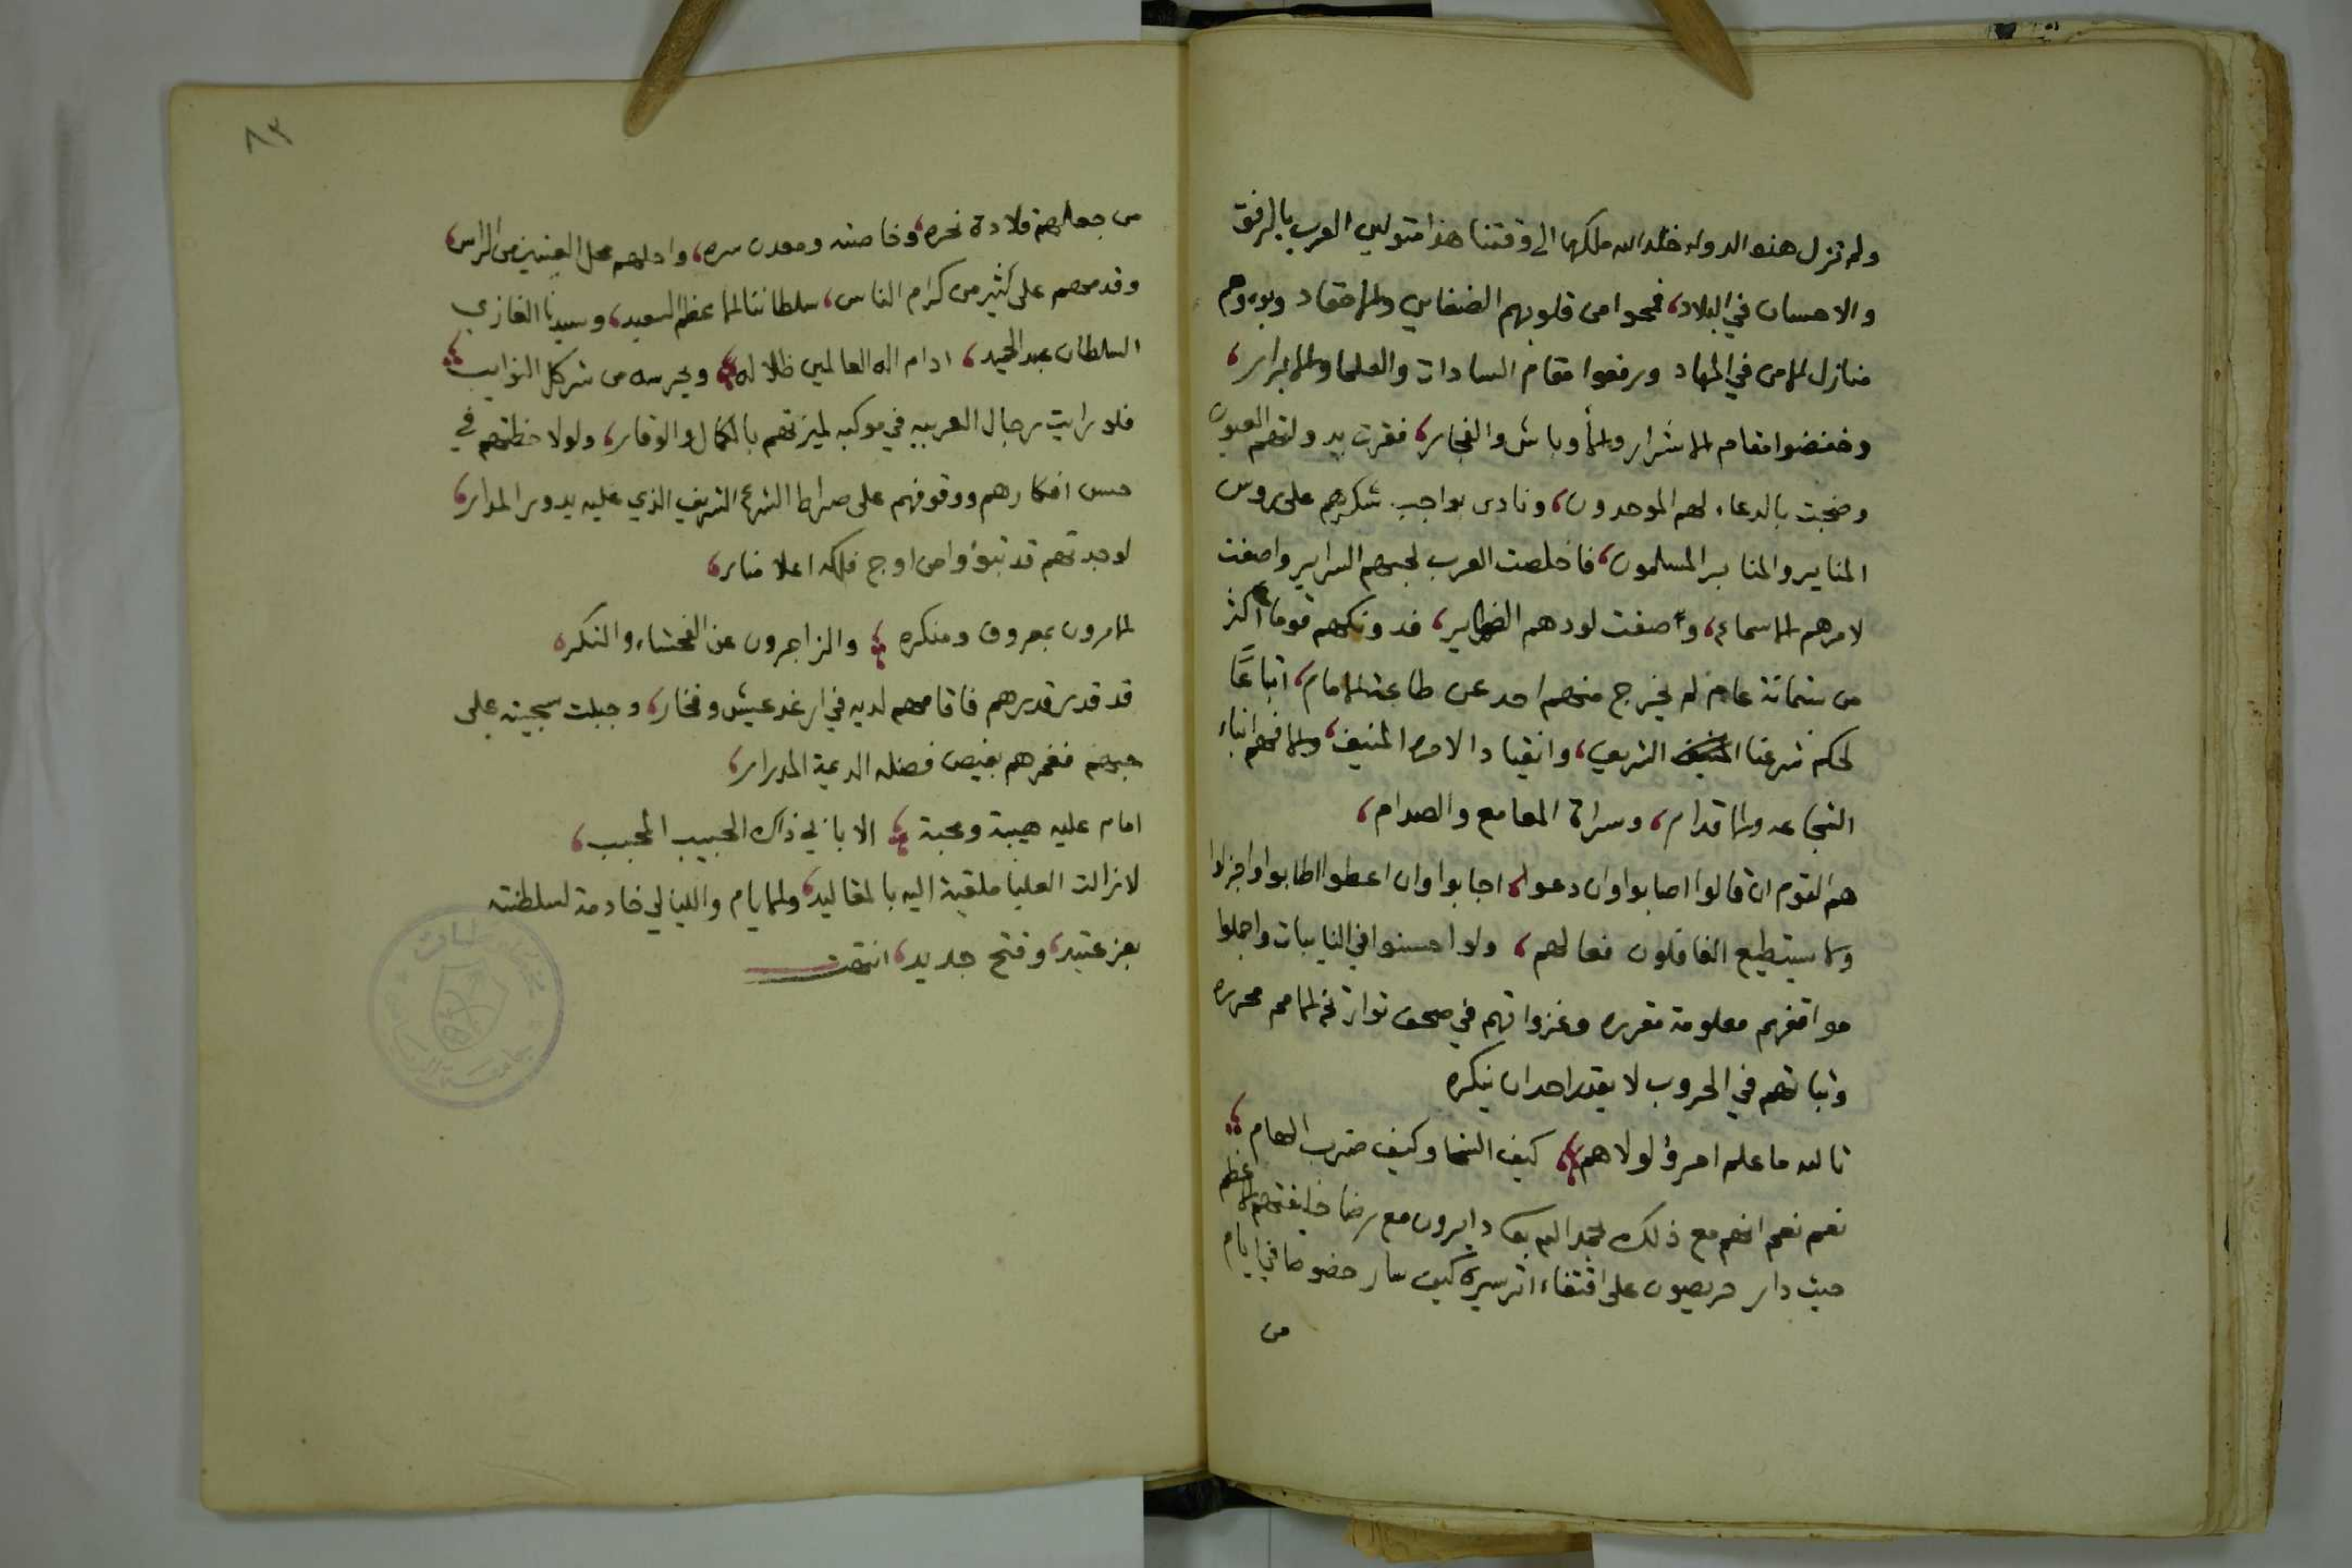 ولم تزل هذه الدوله خلد الله ملكها الى وقتنا هذا متولين العرب بالرفق
والاحسان في البلاد، فمحوا من قلوبهم الضغاين والاحقاد وبوءوهم
منازل الامن في المهاد ورفعوا مقام السادات والعلما والابرار،
وخفضوا مقام الاشرار والأوباش والفجار، فقرت بدولتهم العيون
وضجت بالدعاء لهم الموحدون، ونادى بواجب شكرهم على روس
المناير والمنابر المسلمون، فاخلصت العرب لحبهم السراير واصغت
لامرهم الاسماع، وأصفت لودهم الضماير، فدونكهم قوما أكثر
من ستمائة عام لم يخرج منهم احد عن طاعة الامام، اتباعًا
لحكم شرعنا الشريف، وانقيادا لامره المنيف، والا فهم ابناء
الشجاعه والاقدام، وسراة المعامع والصدام،
هم القوم ان قالوا اصابوا وان دعوا، اجابوا وان اعطوا اطابوا واجزلوا
ولا يستطيع الفاعلون فعالهم، ولو احسنوا في النايبات واجملوا
مواقفهم معلومة مقرره وغزواتهم في صحف تواريخ الامم محرره
وثباتهم في الحروب لا يقدر احد ان ينكره
تالله ما علم امرؤ لولاهم، كيف السخا وكيف ضرب الهام،
نعم نعم انهم مع ذلك بحمد الله دايرون مع رضا خليفتهم الاعظم
حيث دار حريصون على اقتفاء اثر سيره كيف سار خصوصا في ايام
من
٨٣
من جعلهم قلادة نحره، وخاصته ومعدن سره، واحلهم محل العينين من الراس،
وقدمهم على كثير من كرام الناس، سلطاننا الاعظم السعيد، وسيدنا الغازي
السلطان عبد الحميد، ادام اله العالمين ظلاله، ويحرسه من شر كل النوايب،
فلو رايت رجال العربيه في موكبه لميزتهم بالكمال والوقار، ولو لاحظتهم في
حسن افكارهم ووقوفهم على صراط الشرع الشريف الذي عليه يدور المدار،
لوجدتهم قد تبوؤا من اوج فلكه اعلا منار،
الامرون بمعروف ومنكره، والزاجرون عن الفحشاء والنكره
قد قدر قدرهم فاقامهم لديه في ارغد عيش وفخار، وجبلت سجيته على
حبهم فغمرهم بفيض فضله الديمة المدرار،
امام عليه هيبة ومحبة، الا بابي ذاك الحبيب المحبب،
لا زالت العليا ملقية اليه بالمقاليد، والايام والليالي خادمة لسلطنته
بعز عتيد، وفتح جديد، انتهت